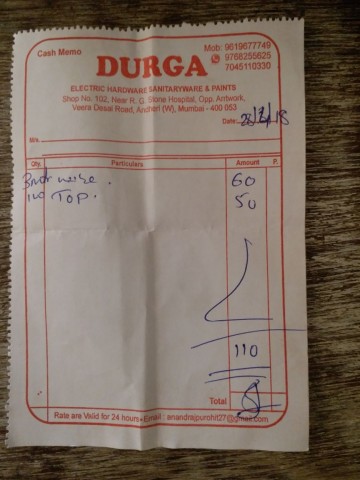 Cash Memo
Mob: 9619677749
9768255625
7045110330
DURGA
ELECTRIC HARDWARE SANITARYWARE & PAINTS
Shop No. 102, Near R. G. Stone Hospital, Opp. Artwork,
Veera Desai Road, Andheri (W), Mumbai - 400 053
Date:
M/s.
Qty. Particulars Amount P.
60
TOP. 50
110
Total
Rate are Valid for 24 hours • Email : anandrajpurohit27@gmail.com